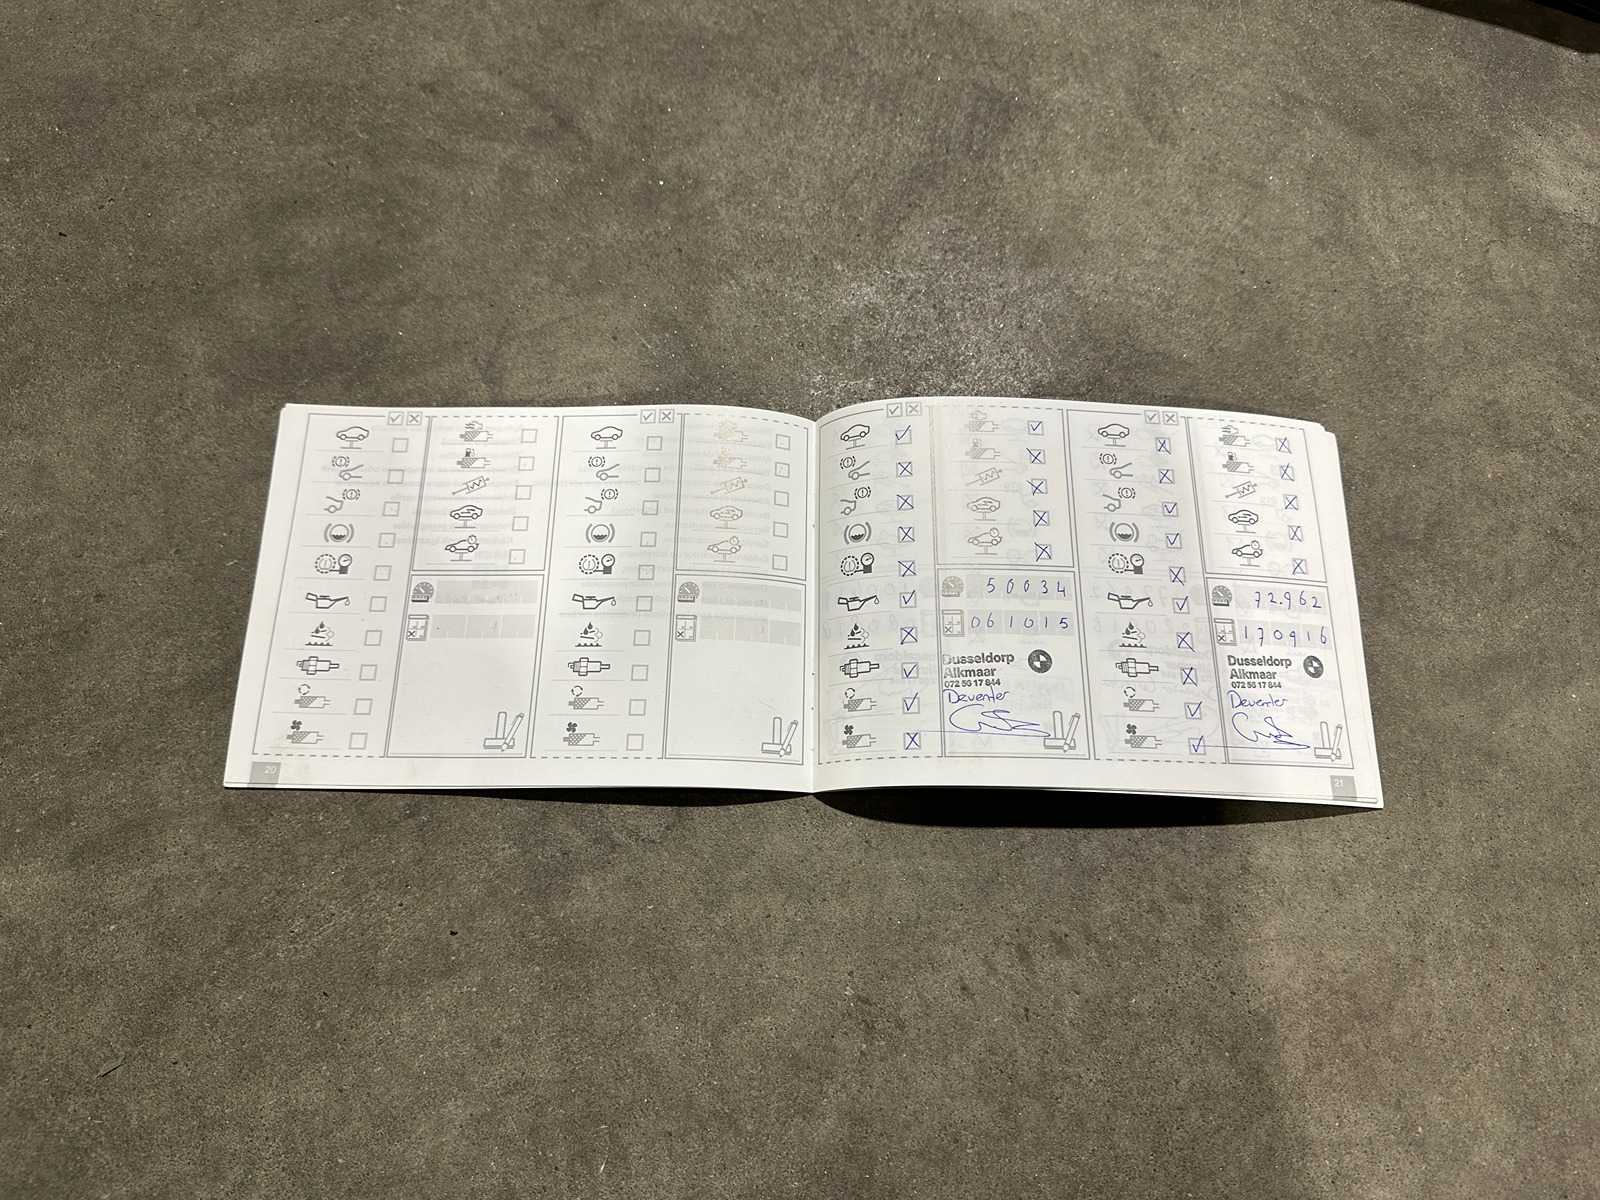 50034
061015
Dusseldorp
Alkmaar
072 56 17 844
Deventer
72.962
170916
Dusseldorp
Alkmaar
072 56 17 844
Deventer
20
21